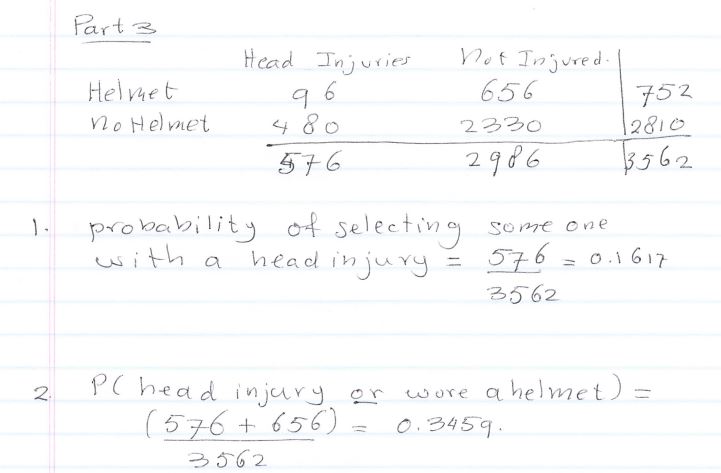 Part 3
Head Injuries Not Injured.
Helmet 96 656 752
No Helmet 480 2330 2810
576 2986 3562
1. probability of selecting some one
with a head injury = 576 = 0.1617
3562
2. P( head injury or wore a helmet) =
(576 + 656) = 0.3459.
3562